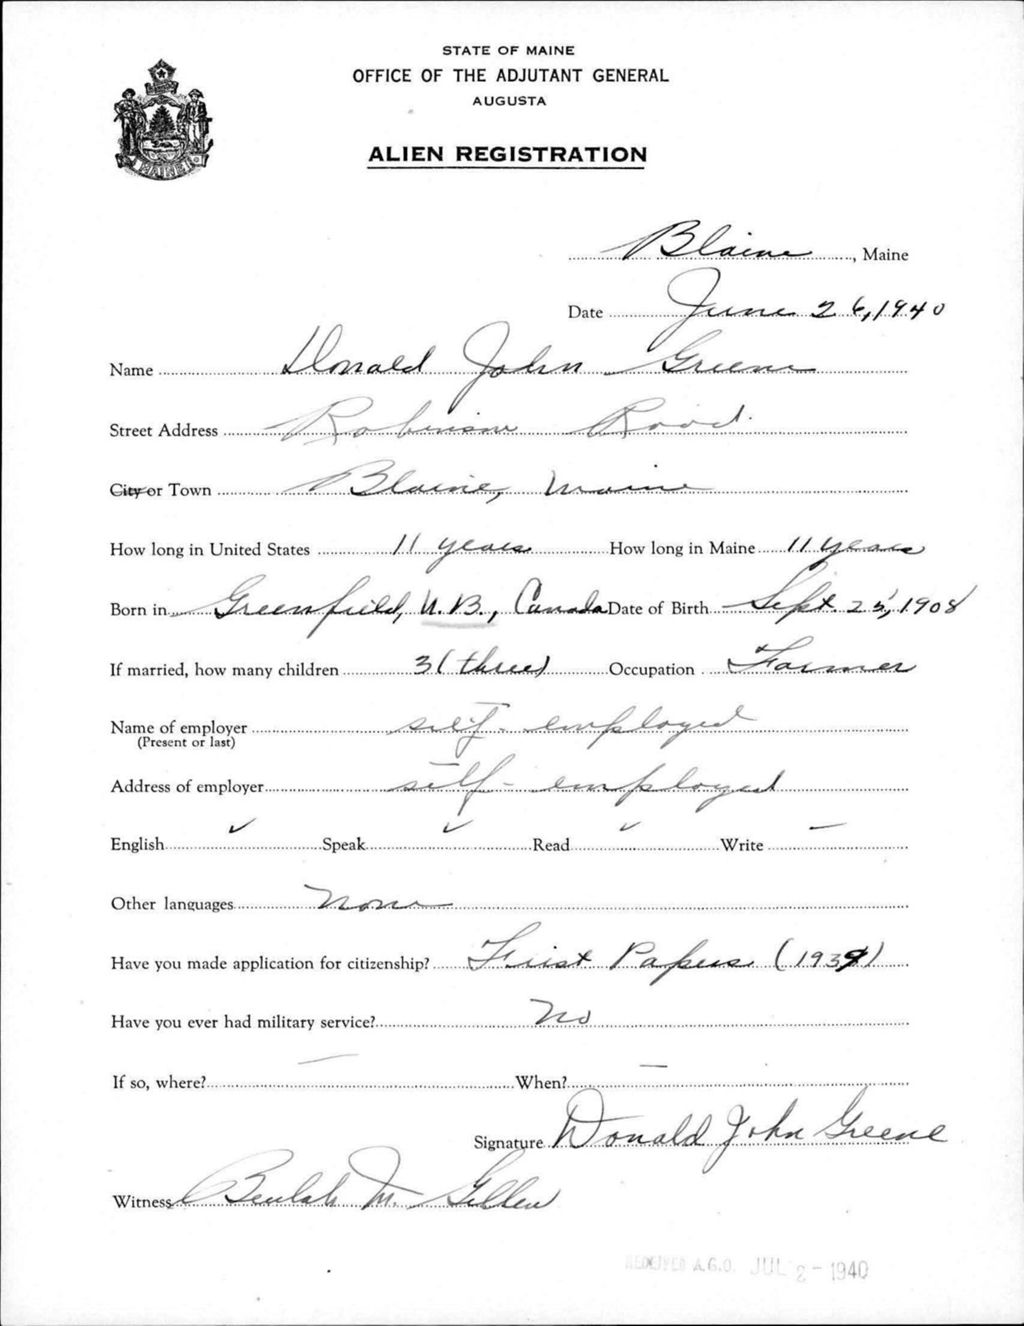 STATE OF MAINE
OFFICE OF THE ADJUTANT GENERAL
AUGUSTA
ALIEN REGISTRATION
MAINE
Blaine, Maine
Date June 26, 1940
Name Donald John Greene
Street Address Robinson Road
City or Town Blaine, Maine
How long in United States 11 years How long in Maine 11 years
Born in Greenfield, N.B., Canada Date of Birth Sept. 25, 1908
If married, how many children 3 (three) Occupation Farmer
Name of employer self-employed
(Present or last)
Address of employer self-employed
English ✓ Speak ✓ Read ✓ Write —
Other languages None
Have you made application for citizenship? First Papers (1939)
Have you ever had military service? No
If so, where? — When? —
Signature Donald John Greene
Witness Beulah M.
RECEIVED A.G.O. JUL 2 - 1940